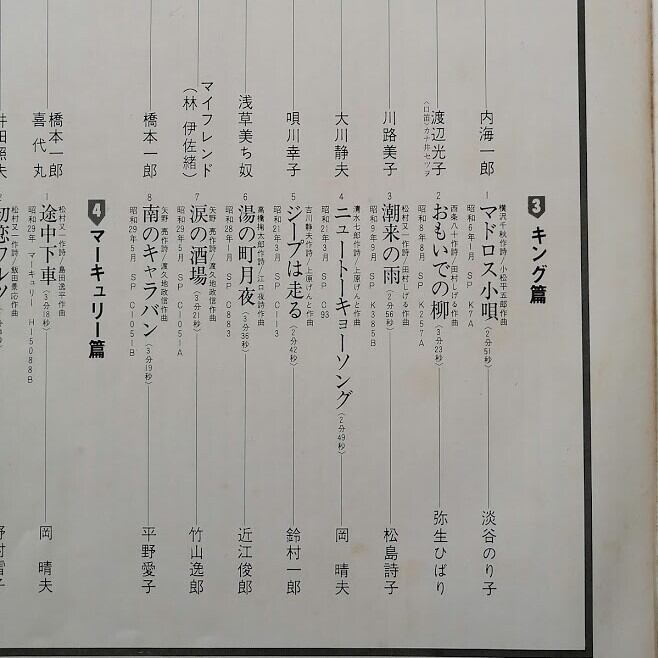 内海一郎
渡辺光子
川路美子
大川静夫
唄川幸子
浅草美ち奴
マイフレンド
(林 伊佐緒)
橋本一郎
橋本一郎
喜代丸
井田照夫
3 キング篇
1 マドロス小唄 (2分51秒)
横沢千秋作詩/小松平五郎作曲
昭和6年1月 SP K7A
淡谷のり子
2 おもいでの柳 (3分23秒)
西条八十作詩/田村しげる作曲
昭和8年8月 SP K257A
弥生ひばり
3 潮来の雨 (2分56秒)
松村又一作詩/田村しげる作曲
昭和9年9月 SP K385B
松島詩子
4 ニュートーキョーソング (2分49秒)
清水七郎作詩/上原げんと作曲
昭和21年3月 SP C93
岡 晴夫
5 ジープは走る (2分42秒)
吉川静夫作詩/上原げんと作曲
昭和21年3月 SP C113
鈴村一郎
6 湯の町月夜 (3分36秒)
高橋掬太郎作詩/江口夜詩作曲
昭和28年1月 SP C883
近江俊郎
7 涙の酒場 (3分21秒)
矢野 亮作詩/渡久地政信作曲
昭和29年5月 SP C1051A
竹山逸郎
8 南のキャラバン (3分19秒)
矢野 亮作詩/渡久地政信作曲
昭和29年5月 SP C1051B
平野愛子
4 マーキュリー篇
1 途中下車 (3分18秒)
松村又一作詩/島田逸平作曲
昭和29年 マーキュリー H15088B
岡 晴夫
2 初恋ワルツ
松村又一作詩/飯田景応作曲